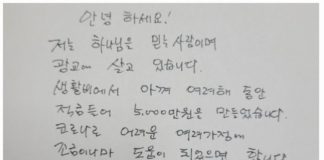 안녕 하세요!
저는 하나님은 믿는 사람이며
광교에 살고 있습니다.
생활비에서 아껴 여러해 동안
적금들어 5,000만원은 만들었습니다.
코로나로 어려운 여러가정에
조금이나마 도움이 되었으면 합니다